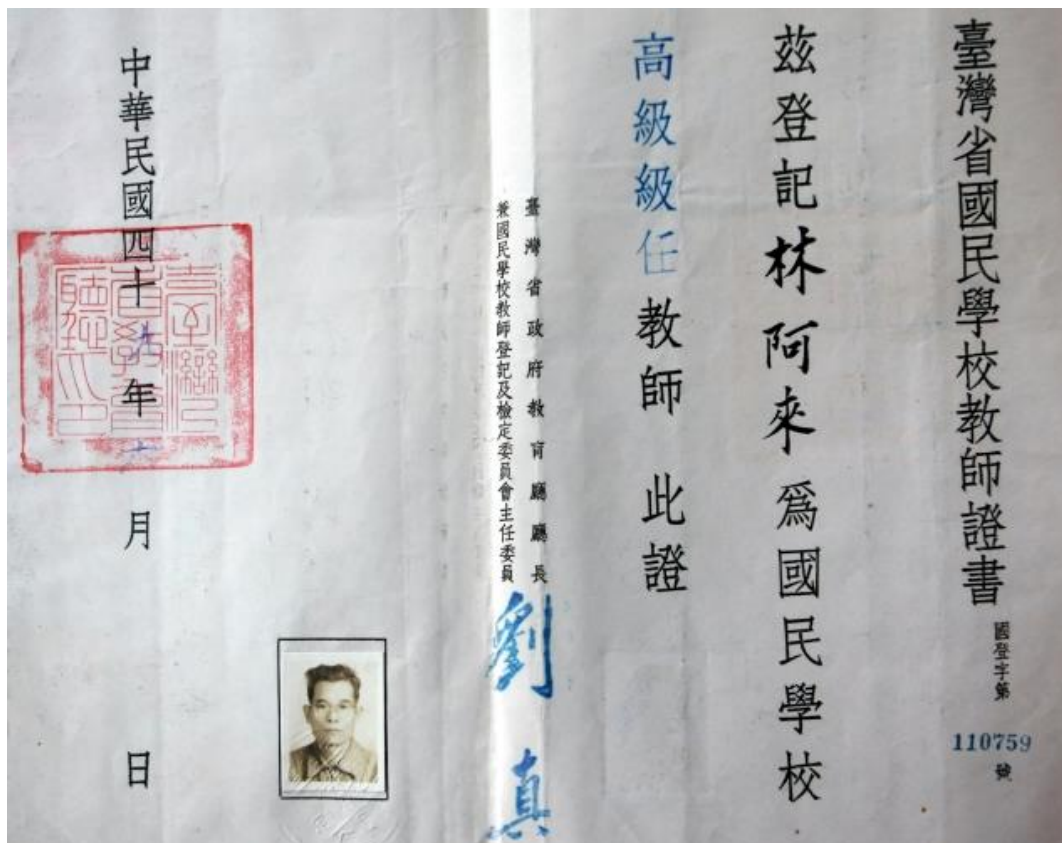 臺灣省國民學校教師證書
國登字第
110759
號
茲登記林阿來為國民學校
高級級任教師 此證
臺灣省政府教育廳廳長
兼國民學校教師登記及檢定委員會主任委員
劉真
中華民國四十年月日
臺灣
省教育
廳印